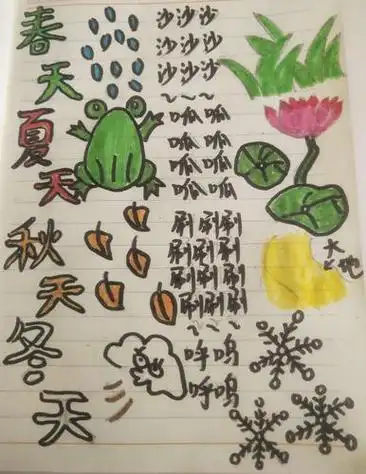 春
天
沙沙沙
沙沙沙
沙沙沙
~~~
夏
天
呱呱
呱呱
呱呱
呱呱
秋
天
刷刷刷
刷刷刷
刷刷刷
刷刷刷
~~~
大地
冬
天
呼呜
呼呜